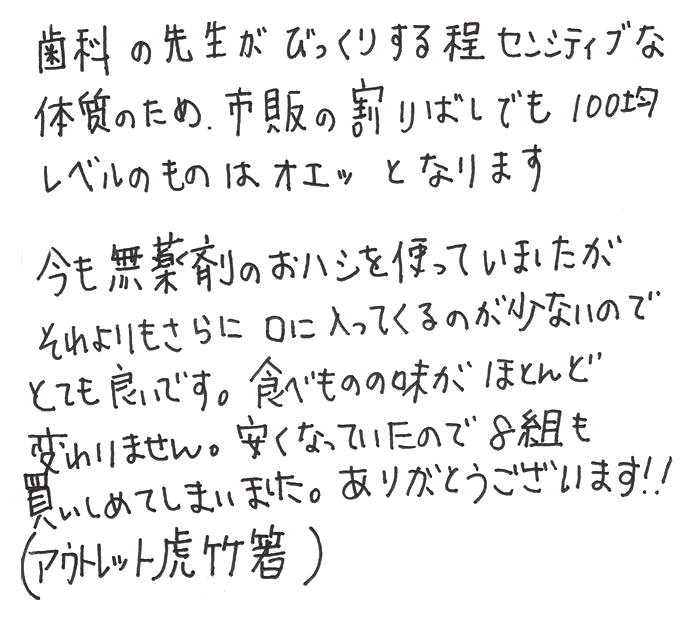 歯科の先生がびっくりする程センシティブな
体質のため、市販の割りばしでも100均
レベルのものはオエッとなります
今も無薬剤のおハシを使っていましたが
それよりもさらに口に入ってくるのが少ないので
とても良いです。食べものの味がほとんど
変わりません。安くなっていたので8組も
買いしめてしまいました。ありがとうございます!!
(アウトレット虎竹箸)